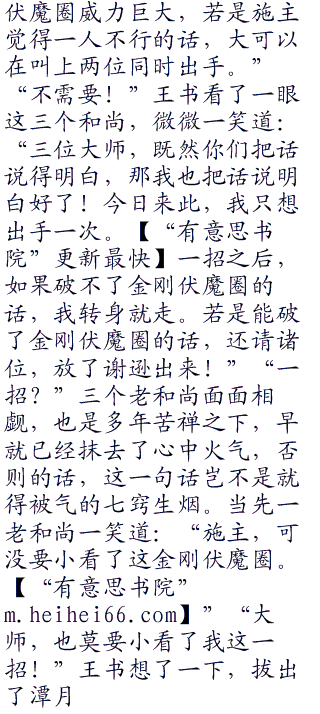 伏魔圈威力巨大，若是施主
觉得一人不行的话，大可以
在叫上两位同时出手。”
“不需要！”王书看了一眼
这三个和尚，微微一笑道：
“三位大师，既然你们把话
说得明白，那我也把话说明
白好了！今日来此，我只想
出手一次。【“有意思书
院”更新最快】一招之后，
如果破不了金刚伏魔圈的
话，我转身就走。若是能破
了金刚伏魔圈的话，还请诸
位，放了谢逊出来！”“一
招？”三个老和尚面面相
觑，也是多年苦禅之下，早
就已经抹去了心中火气，否
则的话，这一句话岂不是就
得被气的七窍生烟。当先一
老和尚一笑道：“施主，可
没要小看了这金刚伏魔圈。
【“有意思书院”
m.heihei66.com】”“大
师，也莫要小看了我这一
招！”王书想了一下，拔出
了潭月